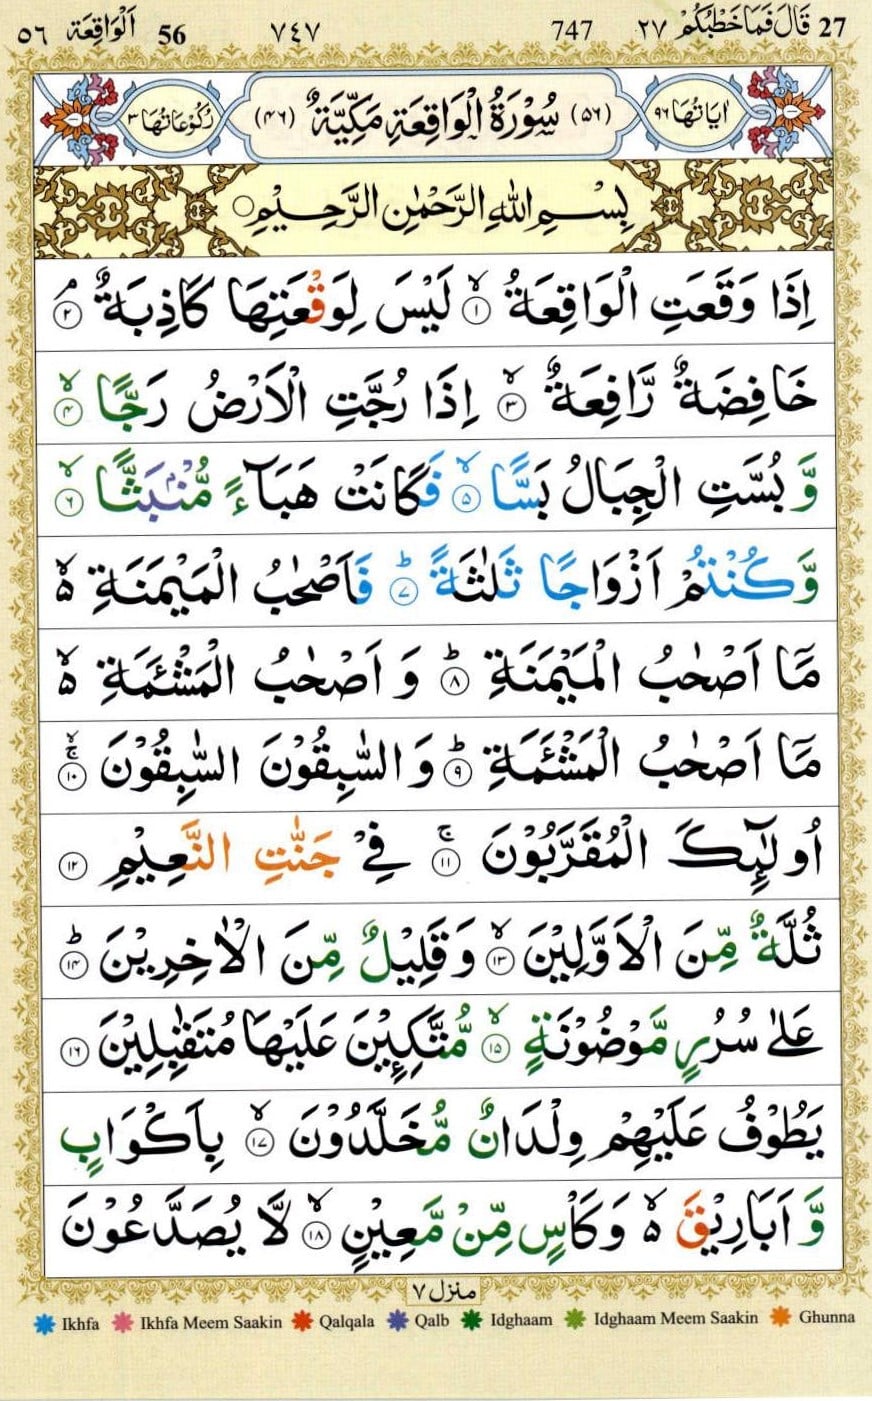 27 قَالَ فَمَا خَطْبُكُمْ ٢٧ 747 ٧٤٧ 56 اَلْوَاقِعَة ٥٦
اٰيَاتُهَا ٩٦ (٥٦) سُوْرَةُ الْوَاقِعَةِ مَكِّيَّةٌ (٤٦) رُكُوْعَاتُهَا ٣
بِسْمِ اللّٰهِ الرَّحْمٰنِ الرَّحِيْمِ
اِذَا وَقَعَتِ الْوَاقِعَةُ ۙ ١ لَيْسَ لِوَقْعَتِهَا كَاذِبَةٌ ۘ ٢
خَافِضَةٌ رَّافِعَةٌ ۙ ٣ اِذَا رُجَّتِ الْاَرْضُ رَجًّا ۙ ٤
وَّ بُسَّتِ الْجِبَالُ بَسًّا ۙ ٥ فَكَانَتْ هَبَآءً مُّنْۢبَثًّا ۙ ٦
وَّكُنْتُمْ اَزْوَاجًا ثَلٰثَةً ؕ ٧ فَاَصْحٰبُ الْمَيْمَنَةِ ۙ۬
مَاۤ اَصْحٰبُ الْمَيْمَنَةِ ؕ ٨ وَ اَصْحٰبُ الْمَشْـَٔمَةِ ۙ۬
مَاۤ اَصْحٰبُ الْمَشْـَٔمَةِ ؕ ٩ وَ السّٰبِقُوْنَ السّٰبِقُوْنَ ۚۙ ١٠
اُولٰٓئِكَ الْمُقَرَّبُوْنَ ۚ ١١ فِيْ جَنّٰتِ النَّعِيْمِ ١٢
ثُلَّةٌ مِّنَ الْاَوَّلِيْنَ ۙ ١٣ وَ قَلِيْلٌ مِّنَ الْاٰخِرِيْنَ ؕ ١٤
عَلٰى سُرُرٍ مَّوْضُوْنَةٍ ۙ ١٥ مُّتَّكِـِٕيْنَ عَلَيْهَا مُتَقٰبِلِيْنَ ١٦
يَطُوْفُ عَلَيْهِمْ وِلْدَانٌ مُّخَلَّدُوْنَ ۙ ١٧ بِاَكْوَابٍ
وَّ اَبَارِيْقَ ۙ۬ وَ كَاْسٍ مِّنْ مَّعِيْنٍ ۙ ١٨ لَّا يُصَدَّعُوْنَ
منزل ٧
Ikhfa Ikhfa Meem Saakin Qalqala Qalb Idghaam Idghaam Meem Saakin Ghunna